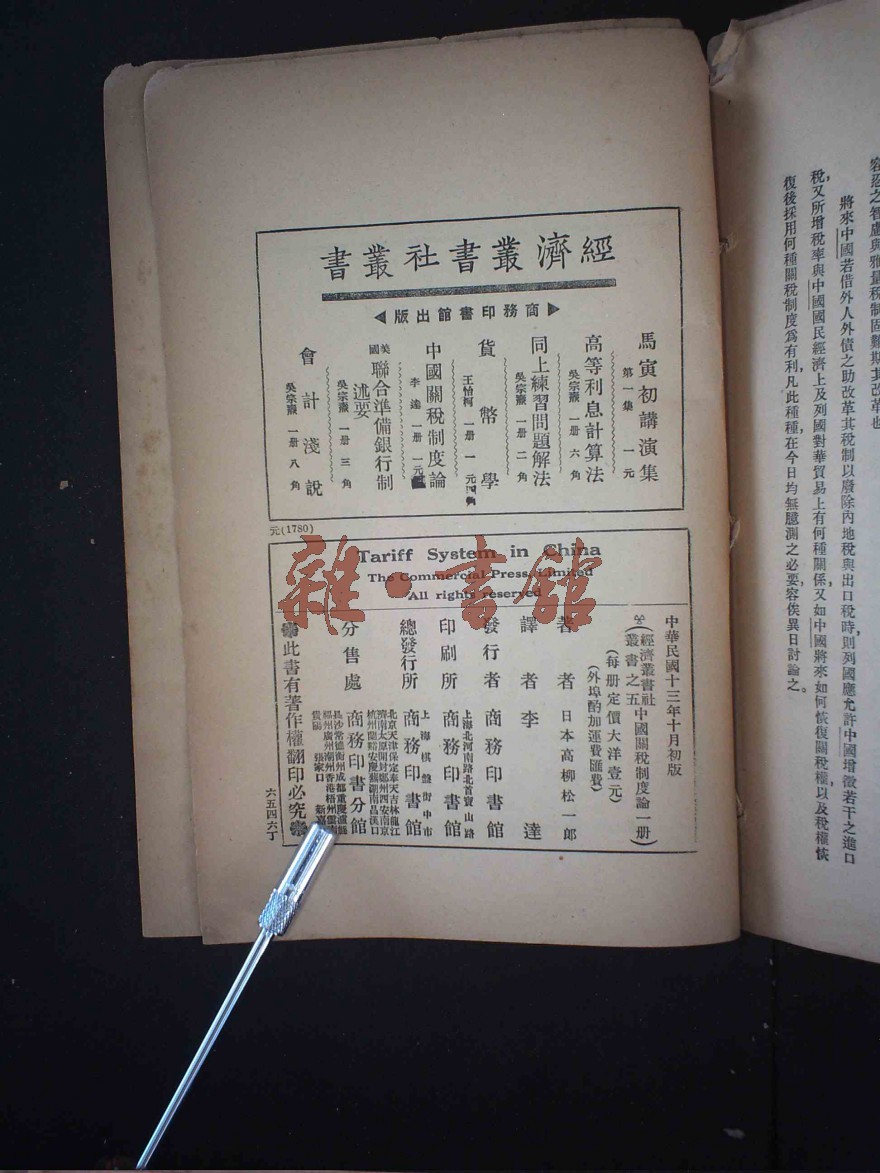 容忍之智慮與雅量稅制固難期其改革也
將來中國若借外人外債之助改革其稅制以廢除內地稅與出口稅時則列國應允許中國增徵若干之進口
稅又所增稅率與中國國民經濟上及列國對華貿易上有何種關係又如中國將來如何恢復關稅權以及稅權恢
復後採用何種關稅制度為有利凡此種種在今日均無臆測之必要容俟異日討論之。
經濟叢書社叢書
商務印書館出版
馬寅初講演集
第一集 一元
高等利息計算法
吳宗燾 一册 六角
同上練習問題解法
吳宗燾 一册 二角
貨幣學
王怡柯 一册 一元四角
中國關稅制度論
李達 一册 一元
美國聯合準備銀行制述要
吳宗燾 一册 三角
會計淺說
吳宗燾 一册 八角
元(1780)
Tariff System in China
The Commercial Press, Limited
All rights reserved
中華民國十三年十月初版
(經濟叢書社叢書之五 中國關稅制度論一册)
(每册定價大洋壹元)
(外埠酌加運費匯費)
著者 日本高柳松一郎
譯者 李達
發行者 商務印書館
上海北河南路北首寶山路
印刷所 商務印書館
上海棋盤街中市
總發行所 商務印書館
北京天津保定奉天吉林龍江
濟南太原開封鄭州西安南京
杭州蘭谿安慶蕪湖南昌漢口
分售處 商務印書分館
長沙常德衡州成都重慶瀘縣
福州廣州潮州香港梧州雲南
貴陽 張家口 新嘉
此書有著作權翻印必究
六五四六丁
雜·書館